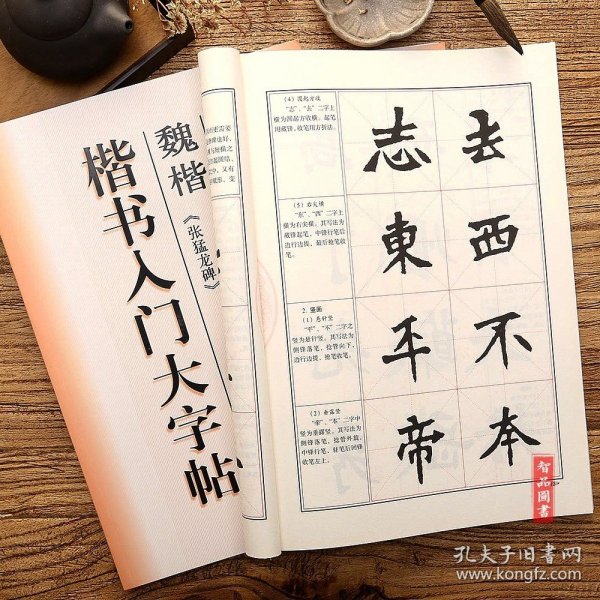 楷书入门大字帖
魏楷
《张猛龙碑》
(4) 圆起方收
“志”、“去”二字上
横为圆起方收横。起笔
用藏锋,收笔用方折法。
志去
(5) 右尖横
“东”、“西”二字上
横为右尖横。其写法为
藏锋起笔,中锋行笔后
边行边提,最后抢笔收
笔。
東西
2. 竖画
(1) 悬针竖
“平”、“不”二字之
竖为悬针竖。其写法为
侧锋落笔,抢管向下,
边行边提,抢笔收笔。
平不
(2) 垂露竖
“帝”、“本”二字中
竖为垂露竖。其写法为
侧锋落笔,抢管外裁,
中锋行笔,驻笔后回锋
收笔左上。
帝本
智品圖書
孔夫子旧书网
www.kongfz.com